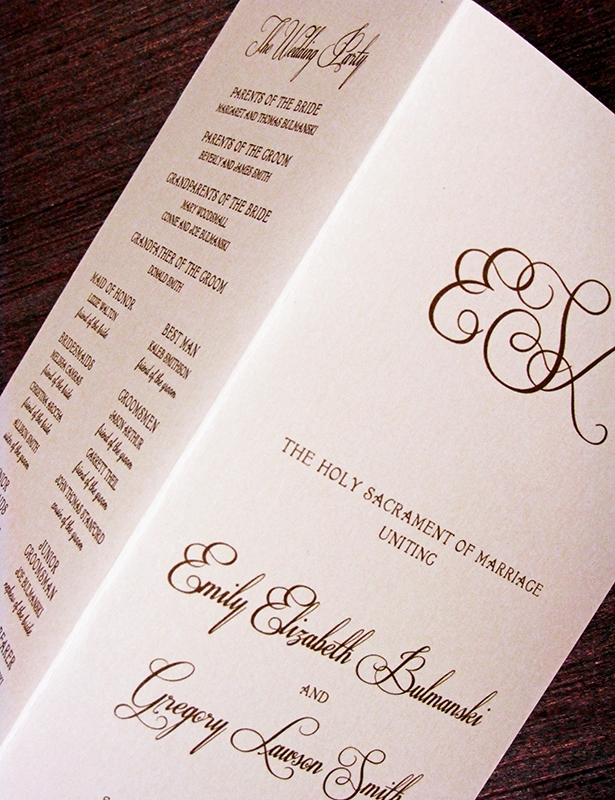 The Wedding Party
PARENTS OF THE BRIDE
MARGARET AND THOMAS BULMANSKI
PARENTS OF THE GROOM
BEVERLY AND JAMES SMITH
GRANDPARENTS OF THE BRIDE
MARY WOODSMALL
CONNIE AND JOE BULMANSKI
GRANDFATHER OF THE GROOM
DONALD SMITH
MAID OF HONOR
LIZZIE WALTON
friend of the bride
BRIDESMAIDS
friend of the bride
friend of the bride
ALLISON SMITH
sister of the groom
BEST MAN
KALEB SMITHSON
friend of the groom
GROOMSMEN
JASON ARTHUR
friend of the groom
GARRETT THEIL
friend of the groom
JOHN THOMAS STANFORD
cousin of the groom
JUNIOR
GROOMSMAN
JOE BULMANSKI
of the bride
THE HOLY SACRAMENT OF MARRIAGE
UNITING
Emily Elizabeth Bulmanski
AND
Gregory Lawson Smith